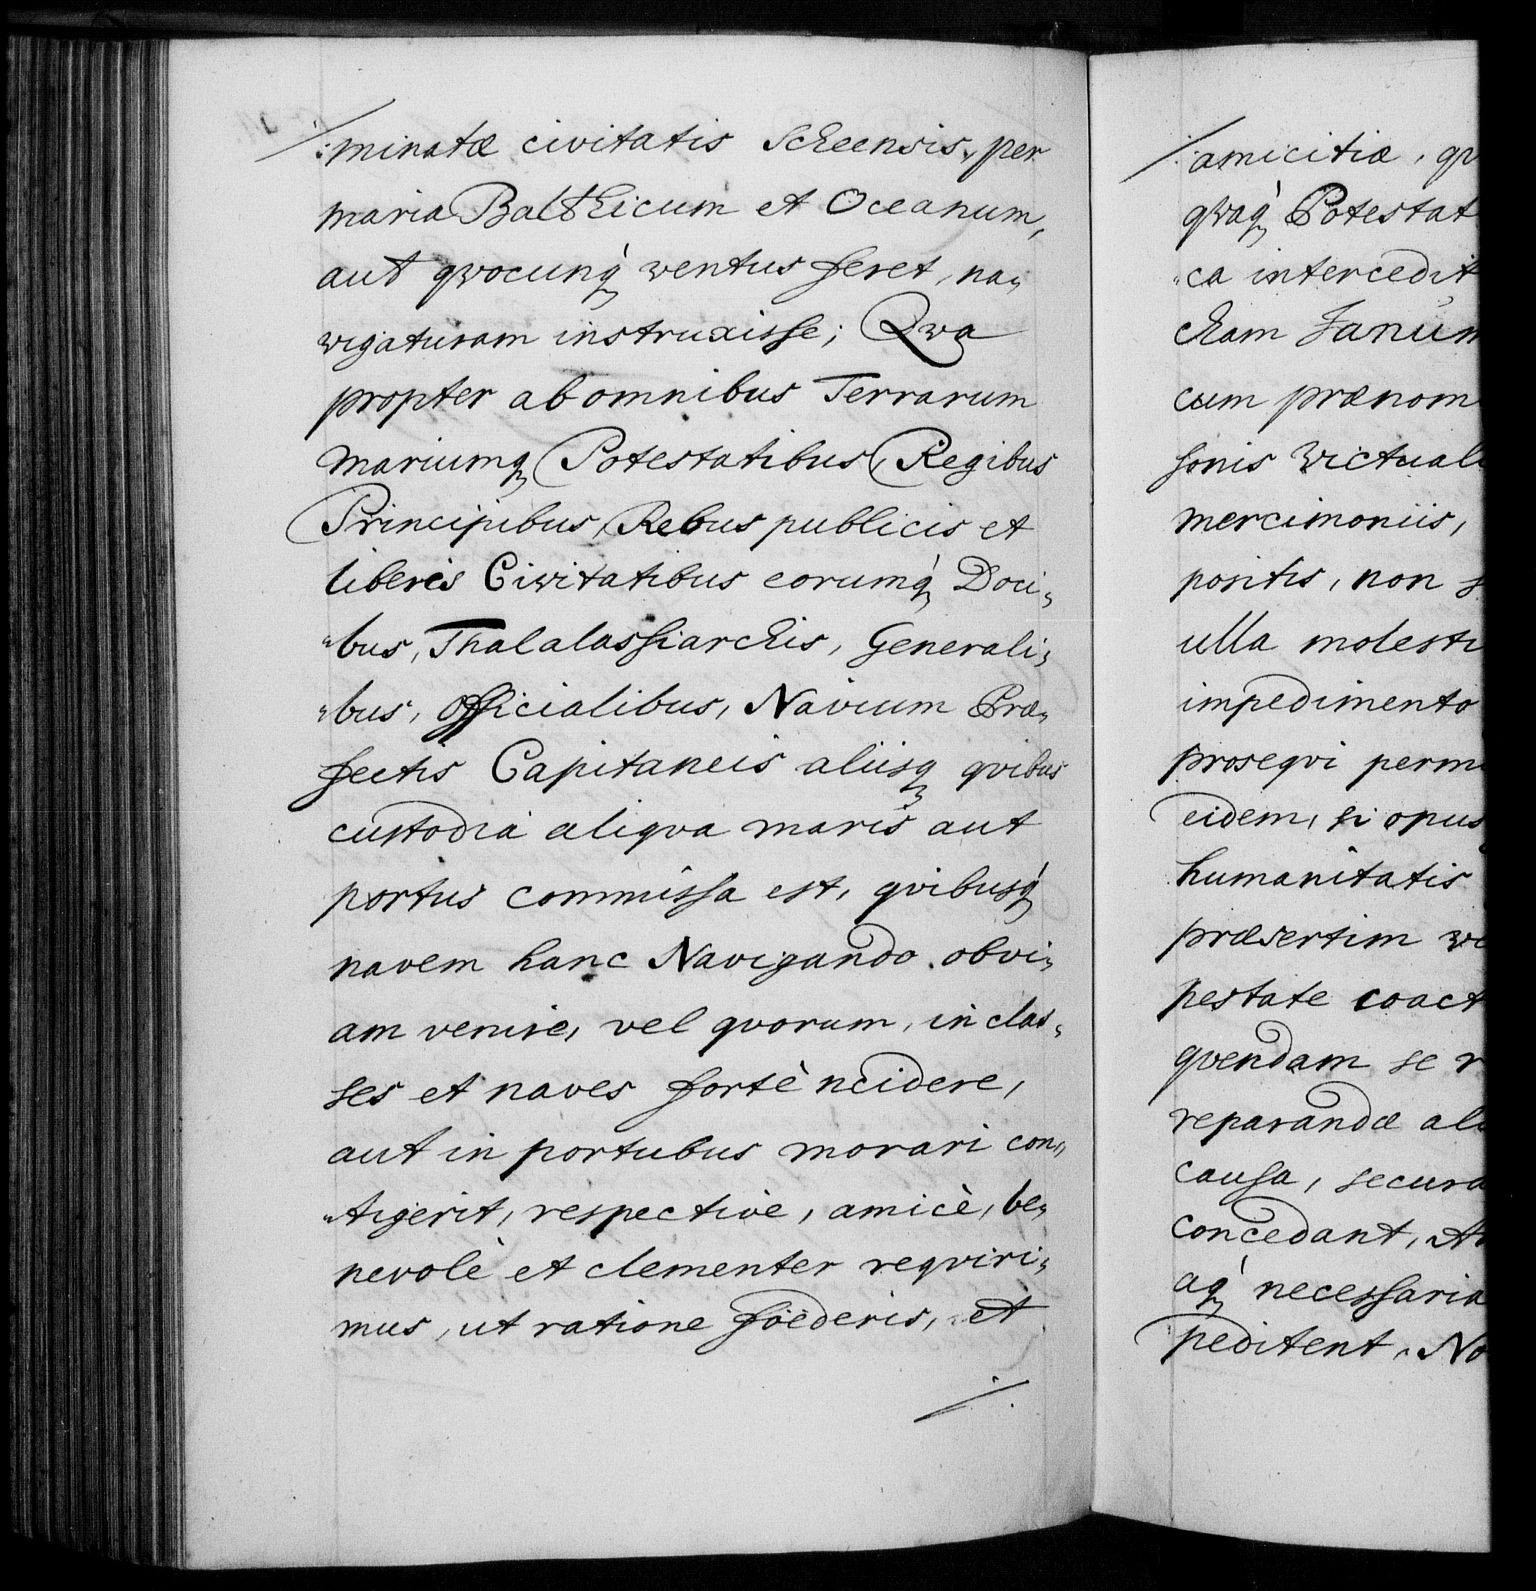 minatæ civitatis Scheensis, per
maria Balthicum et Oceanum,
aut qvocunq́ ventus feret, na„
vigaturam instruxisse; Qva
propter ab omnibus Terrarum
mariumq Potestatibus, Regibus
Principibus, Rebus publicis et
liberis Civitatibus eorumq́ Doci„
„bus, Thalalassiarchis, Generali„
„bus, officialibus, Navium Præ„
fectis Capitaneis aliisq qvibus
custodia aliqva maris aut
portus commissa est, qvibusq́
navem hanc Navigando obvi„
am venire, vel qvorum, in clas„
ses et naves fortè ncidere,
aut in portubus morari con„
„tigerit, respectivè, amicè, be„
nevolè et clementer reqviri„
mus, ut ratione foederis, et
amicitiæ, qv
qvaq́ Potestat
„ca intercedit
cham Janum
cum prænom
sonis victual
mercimoniis,
positis, non s
ulla molesti
impedimento
proseqvi perm
eidem, si opus
humanitatis
præsertim
pestate coact
qvendam se r
reparandæ ali
causa, secura
concedant,
aq́ necessaria
peditent, No